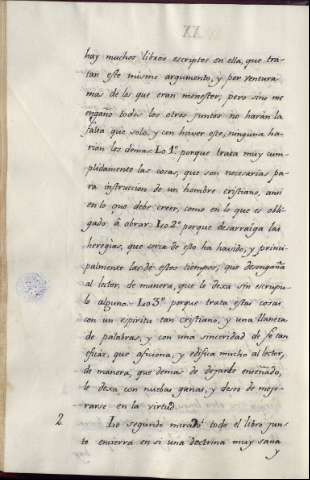 hay muchos libros escriptos en ella, que tra-
tan este mismo argumento, y por ventura
mas de los que eran menester, pero sino me
engaño todos los otros juntos no harán la
falta que solo, y con haver este, ninguna ha-
rian los demas. Lo 1º porque trata muy cum-
plidamente las cosas, que son necesarias pa-
ra instruccion de un hombre cristiano, ansi
en lo que debe creer, como en lo que es obli-
gado á obrar. Lo 2º porque desarraiga las
heregias, que cerca de esto ha havido, y princi-
palmente las de estos tiempos, que desengaña
al letor, de manera, que le dexa sin escrupu-
lo alguno. Lo 3º porque trata estas cosas
con un espiritu tan cristiano, y una llaneza
de palabras, y con una sinceridad de fe tan
eficaz, que aficiona, y edifica mucho al letor,
de manera, que demas de dejarle enseñado,
le dexa con nuebas ganas, y deseo de mejo-
rarse en la virtud.
2 Lo segundo mirado todo el libro jun-
to encierra en si una doctrina muy sana
y